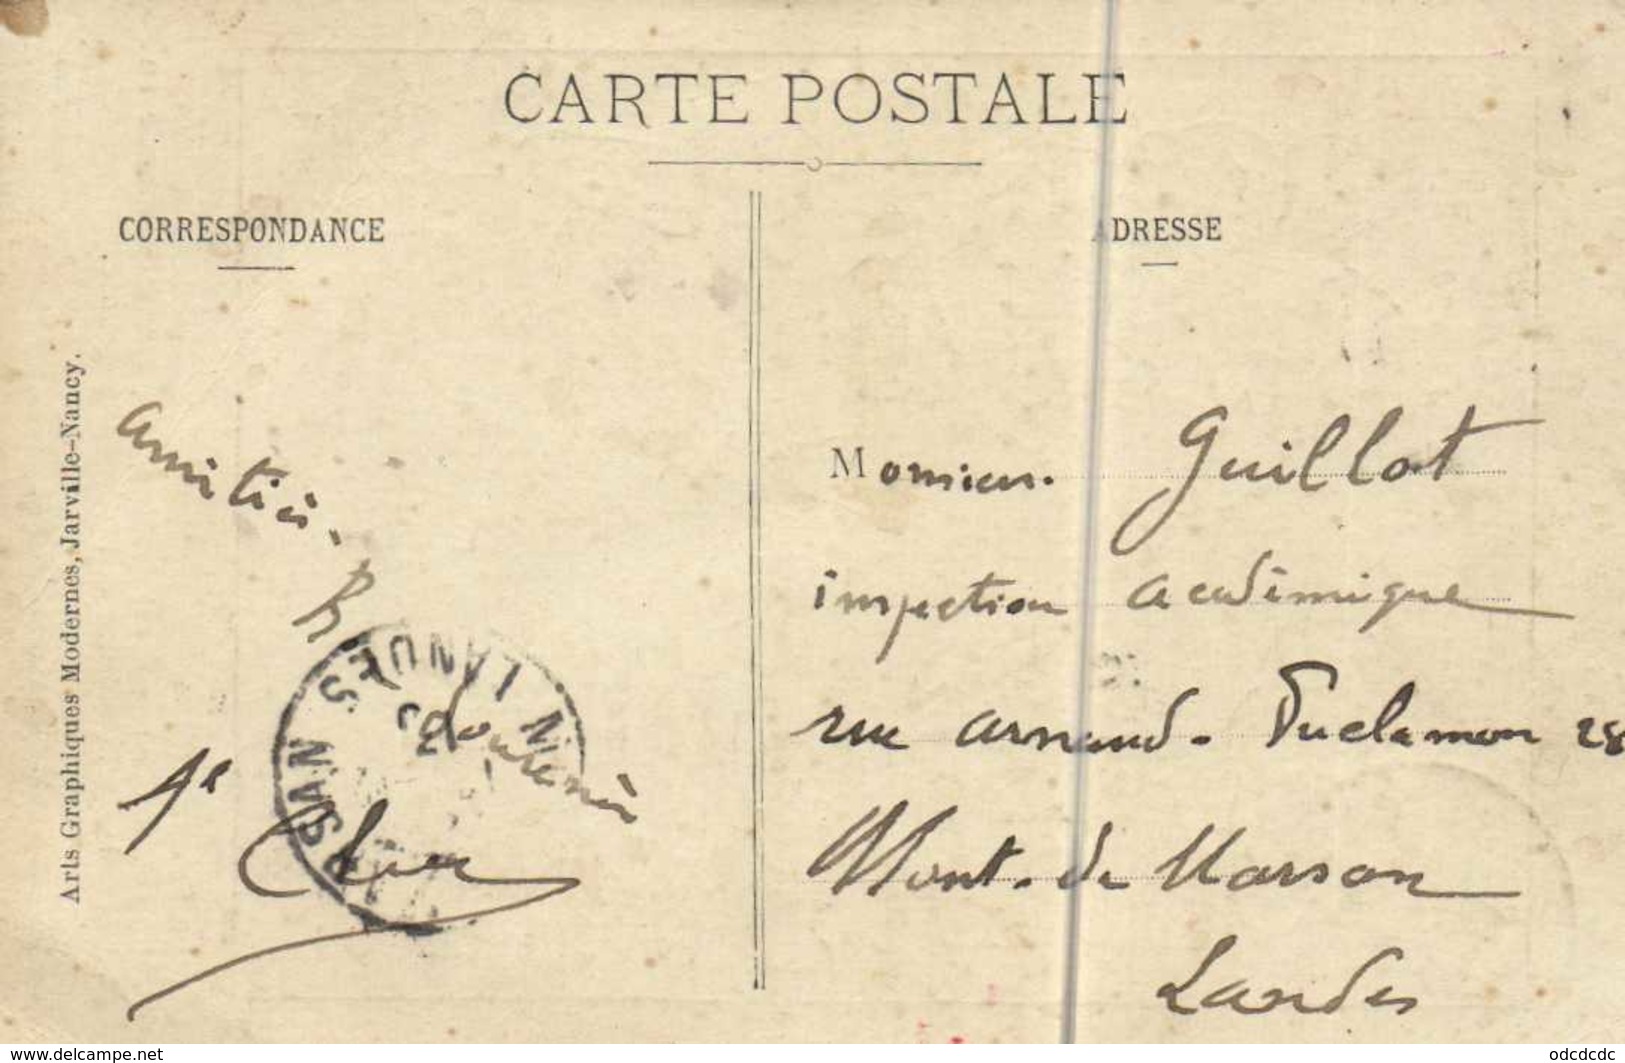 CARTE POSTALE
CORRESPONDANCE
ADRESSE
Arts Graphiques Modernes, Jarville-Nancy.
amitiés.
Monsieur Guillot
inspection académique
rue Arnaud-Duclamon 28
Mont-de Marsan
Landes
SAN
LANDES
www.delcampe.net
odcdcdc